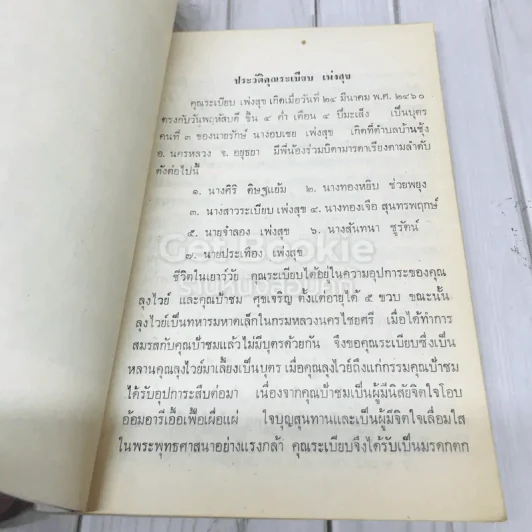 ประวัติคุณระเบียบ เพ่งสุข
คุณระเบียบ เพ่งสุข เกิดเมื่อวันที่ ๒๙ มีนาคม พ.ศ. ๒๔๖๐
ตรงกับวันพฤหัสบดี ขึ้น ๔ ค่ำ เดือน ๔ ปีมะเส็ง เป็นบุตร
คนที่ ๓ ของนายรักษ์ นางอบเชย เพ่งสุข เกิดที่ตำบลบ้านชุ้ง
อ. นครหลวง จ. อยุธยา มีพี่น้องร่วมบิดามารดาเรียงตามลำดับ
ดังต่อไปนี้
๑. นางศิริ ดิษฐแย้ม ๒. นางทองหยิบ ช่วยพยุง
๓. นางสาวระเบียบ เพ่งสุข ๔. นางทองเจือ สุนทรพฤกษ์
๕. นายจำลอง เพ่งสุข ๖. นางสันทนา ชูรัตน์
๗. นายประเทือง เพ่งสุข
Get Bookie
ร้านหนังสือมือเก๋า
ชีวิตในเยาว์วัย คุณระเบียบได้อยู่ในความอุปการะของคุณ
ลุงไวย์ และคุณป้าชม ศุขเจริญ ตั้งแต่อายุได้ ๕ ขวบ ขณะนั้น
ลุงไวย์เป็นทหารมหาดเล็กในกรมหลวงนครไชยศรี เมื่อได้ทำการ
สมรสกับคุณป้าชมแล้วไม่มีบุตรด้วยกัน จึงขอคุณระเบียบซึ่งเป็น
หลานคุณลุงไวย์มาเลี้ยงเป็นบุตร เมื่อคุณลุงไวย์ถึงแก่กรรมคุณป้าชม
ได้รับอุปการะสืบต่อมา เนื่องจากคุณป้าชมเป็นผู้มีนิสัยจิตใจโอบ
อ้อมอารีเอื้อเฟื้อเผื่อแผ่ ใจบุญสุนทานและเป็นผู้มีจิตใจเลื่อมใส
ในพระพุทธศาสนาอย่างแรงกล้า คุณระเบียบจึงได้รับเป็นมรดกตก